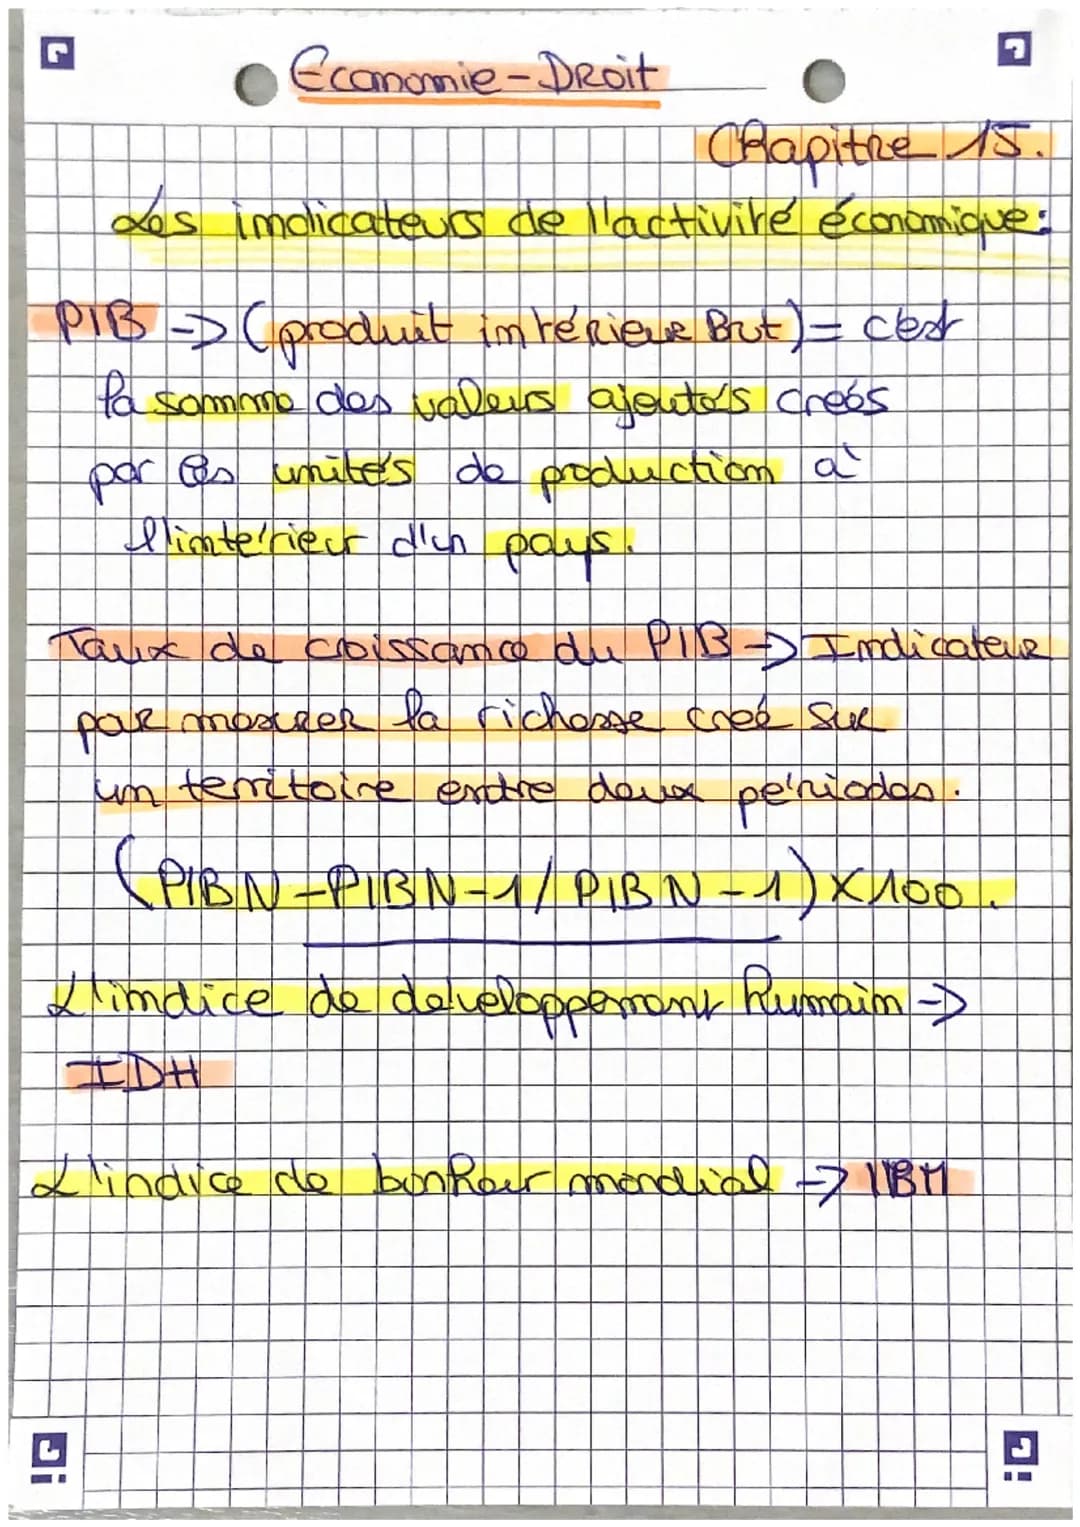 Économie-Droit
Chapitre 15.
Les indicateurs de l'activité économique:
PIB -> (produit intérieur Brut) = c'est
la somme des valeurs ajoutés creés
par les unités de production à
l'intérieur d'un pays.
Taux de croissance du PIB -> Indicateur
par mesurer la richesse creé sur
un territoire entre deux périodes.
(PIBN-PIBN-1/PIBN-1)X100.
L'indice de développement humain ->
IDH
L'indice de bonheur mondial -> IBM